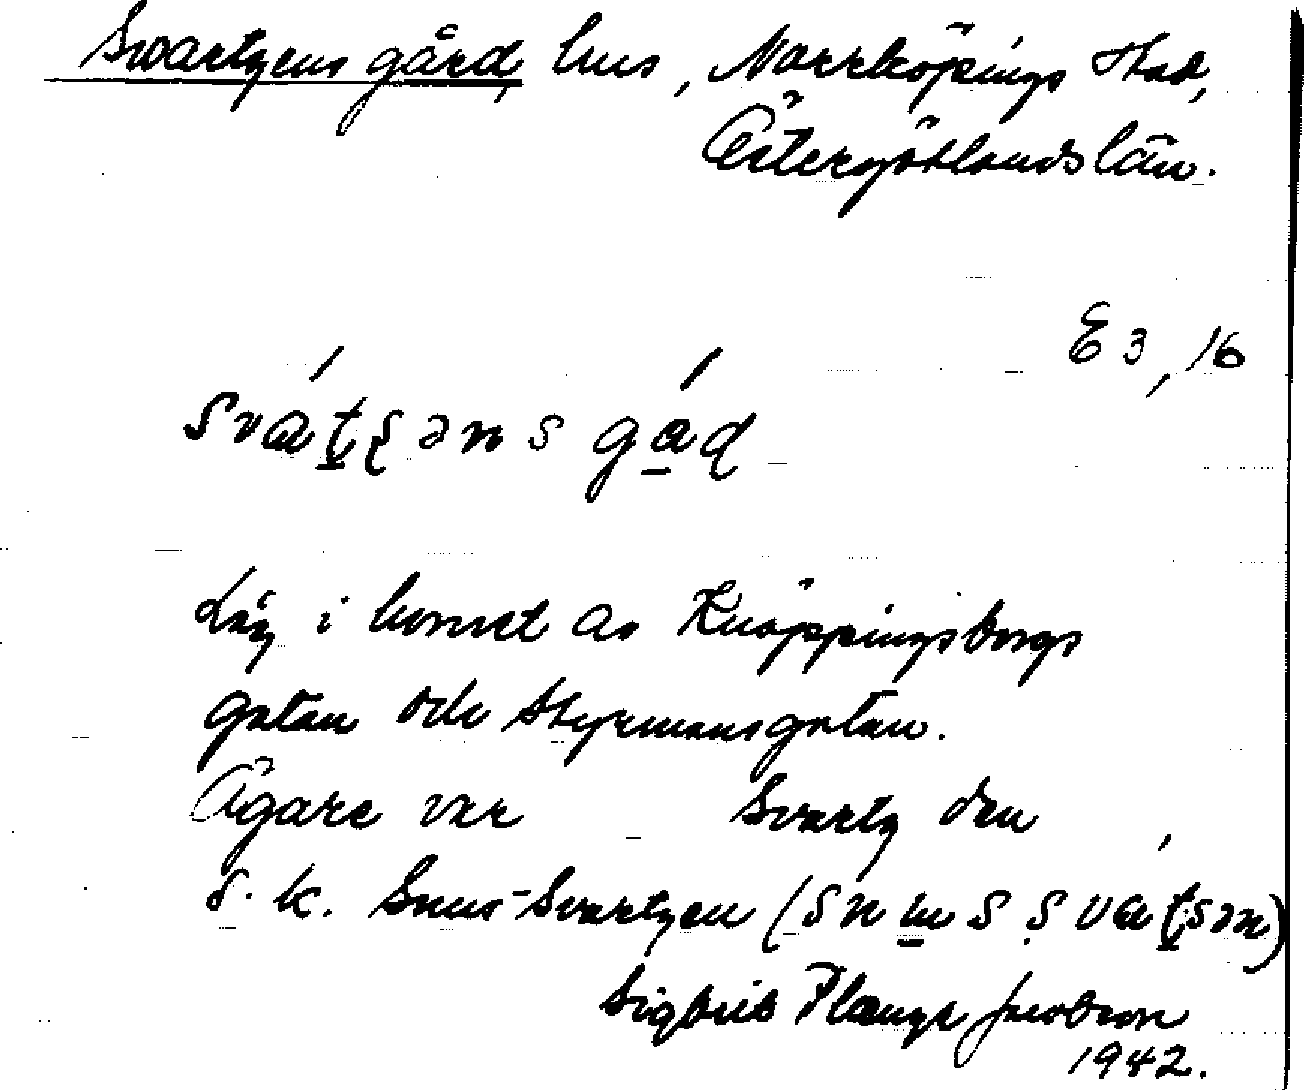 Swartzens gård, hus, Norrköpings stad,
Östergötlands län.
E 3, 16
svátʂəns gɑ́ɖ
Låg i hörnet av Knäppingsborgs
gatan och Styrmansgatan.
Ägare var Svartz den
s. k. Snus-Svartzen (snɯs svátsən)
Sigbrit Plænge Jacobson
1942.